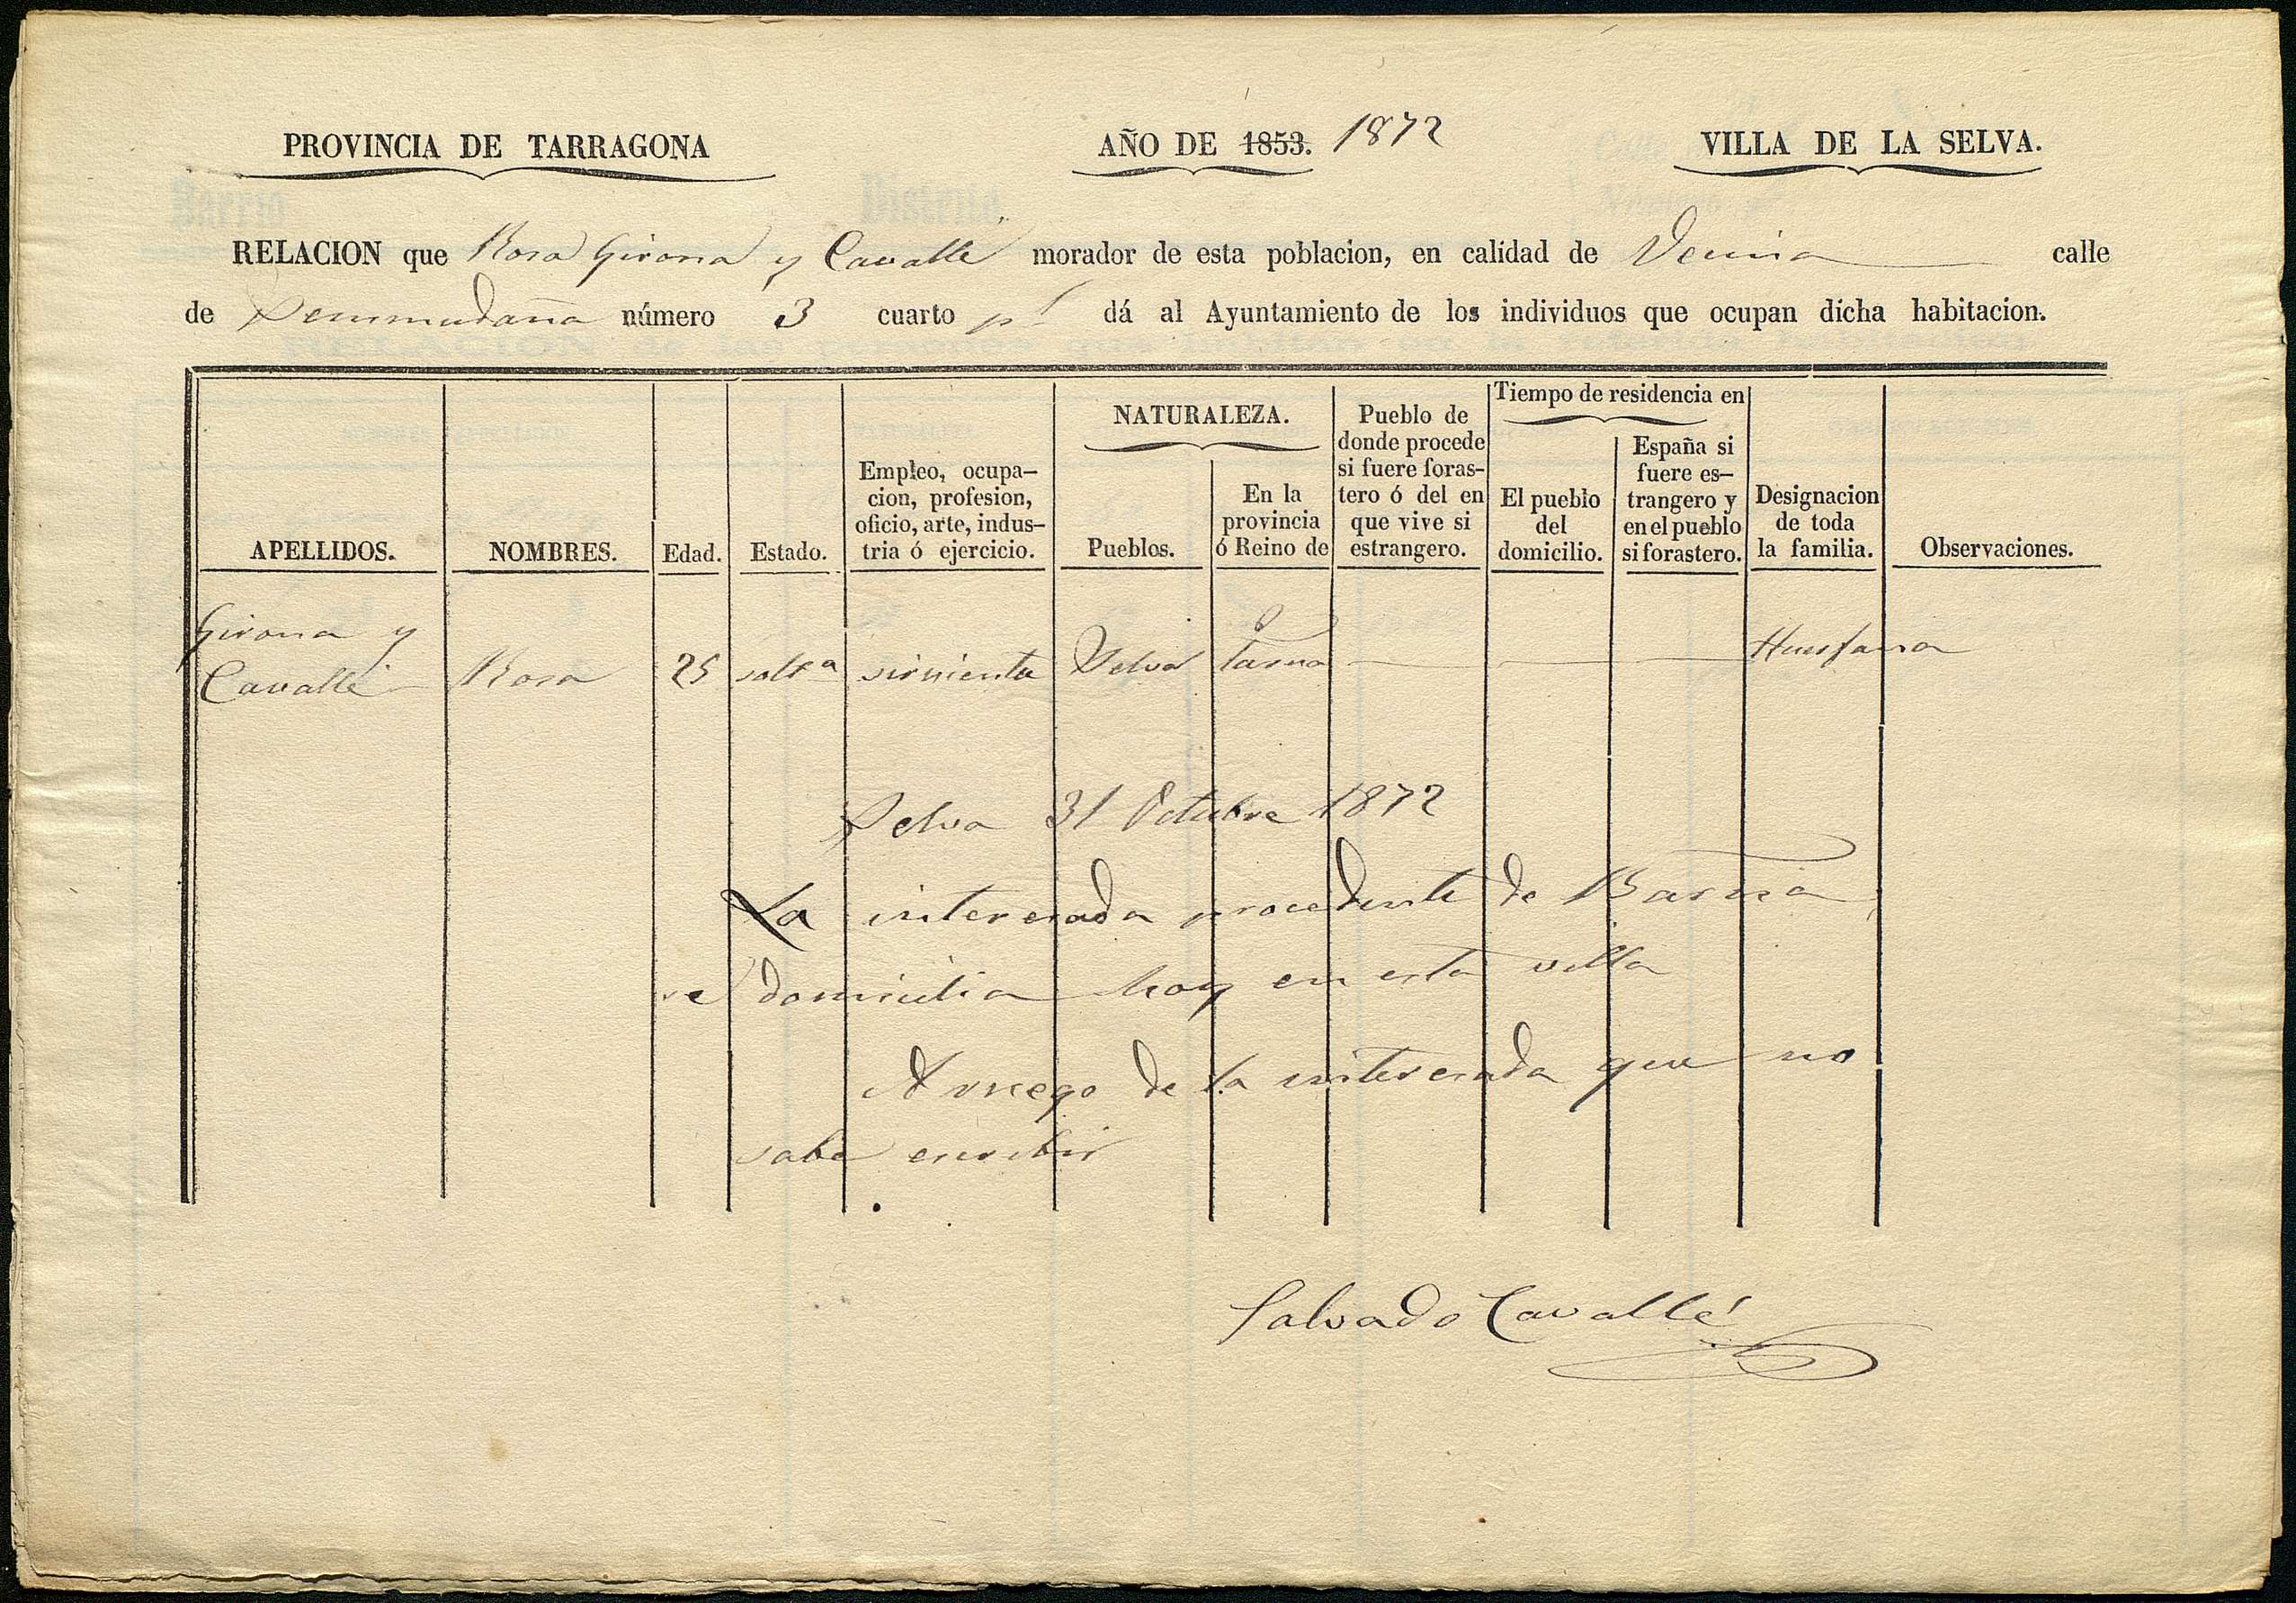 PROVINCIA DE TARRAGONA
AÑO DE 1853. 1872
VILLA DE LA SELVA.
RELACION que Rosa Girona y Cavallé morador de esta poblacion, en calidad de Vecina calle
de número 3 cuarto dá al Ayuntamiento de los individuos que ocupan dicha habitacion.
APELLIDOS.
NOMBRES.
Edad.
Estado.
Empleo, ocupa-
cion, profesion,
oficio, arte, indus-
tria ó ejercicio.
NATURALEZA.
Pueblos.
En la
provincia
ó Reino de
Pueblo de
donde procede
si fuere foras-
tero ó del en
que vive si
estrangero.
Tiempo de residencia en
El pueblo
del
domicilio.
España si
fuere es-
trangero y
en el pueblo
si forastero.
Designacion
de toda
la familia.
Observaciones.
Girona y
Cavallé Rosa 25 solta sirvienta Selva Tarna Huerfana
Selva 31 Octubre 1872
La interesada procedente de Barna
se domicilia hoy en esta villa
A ruego de la interesada que no
sabe escribir
Salvado Cavallé